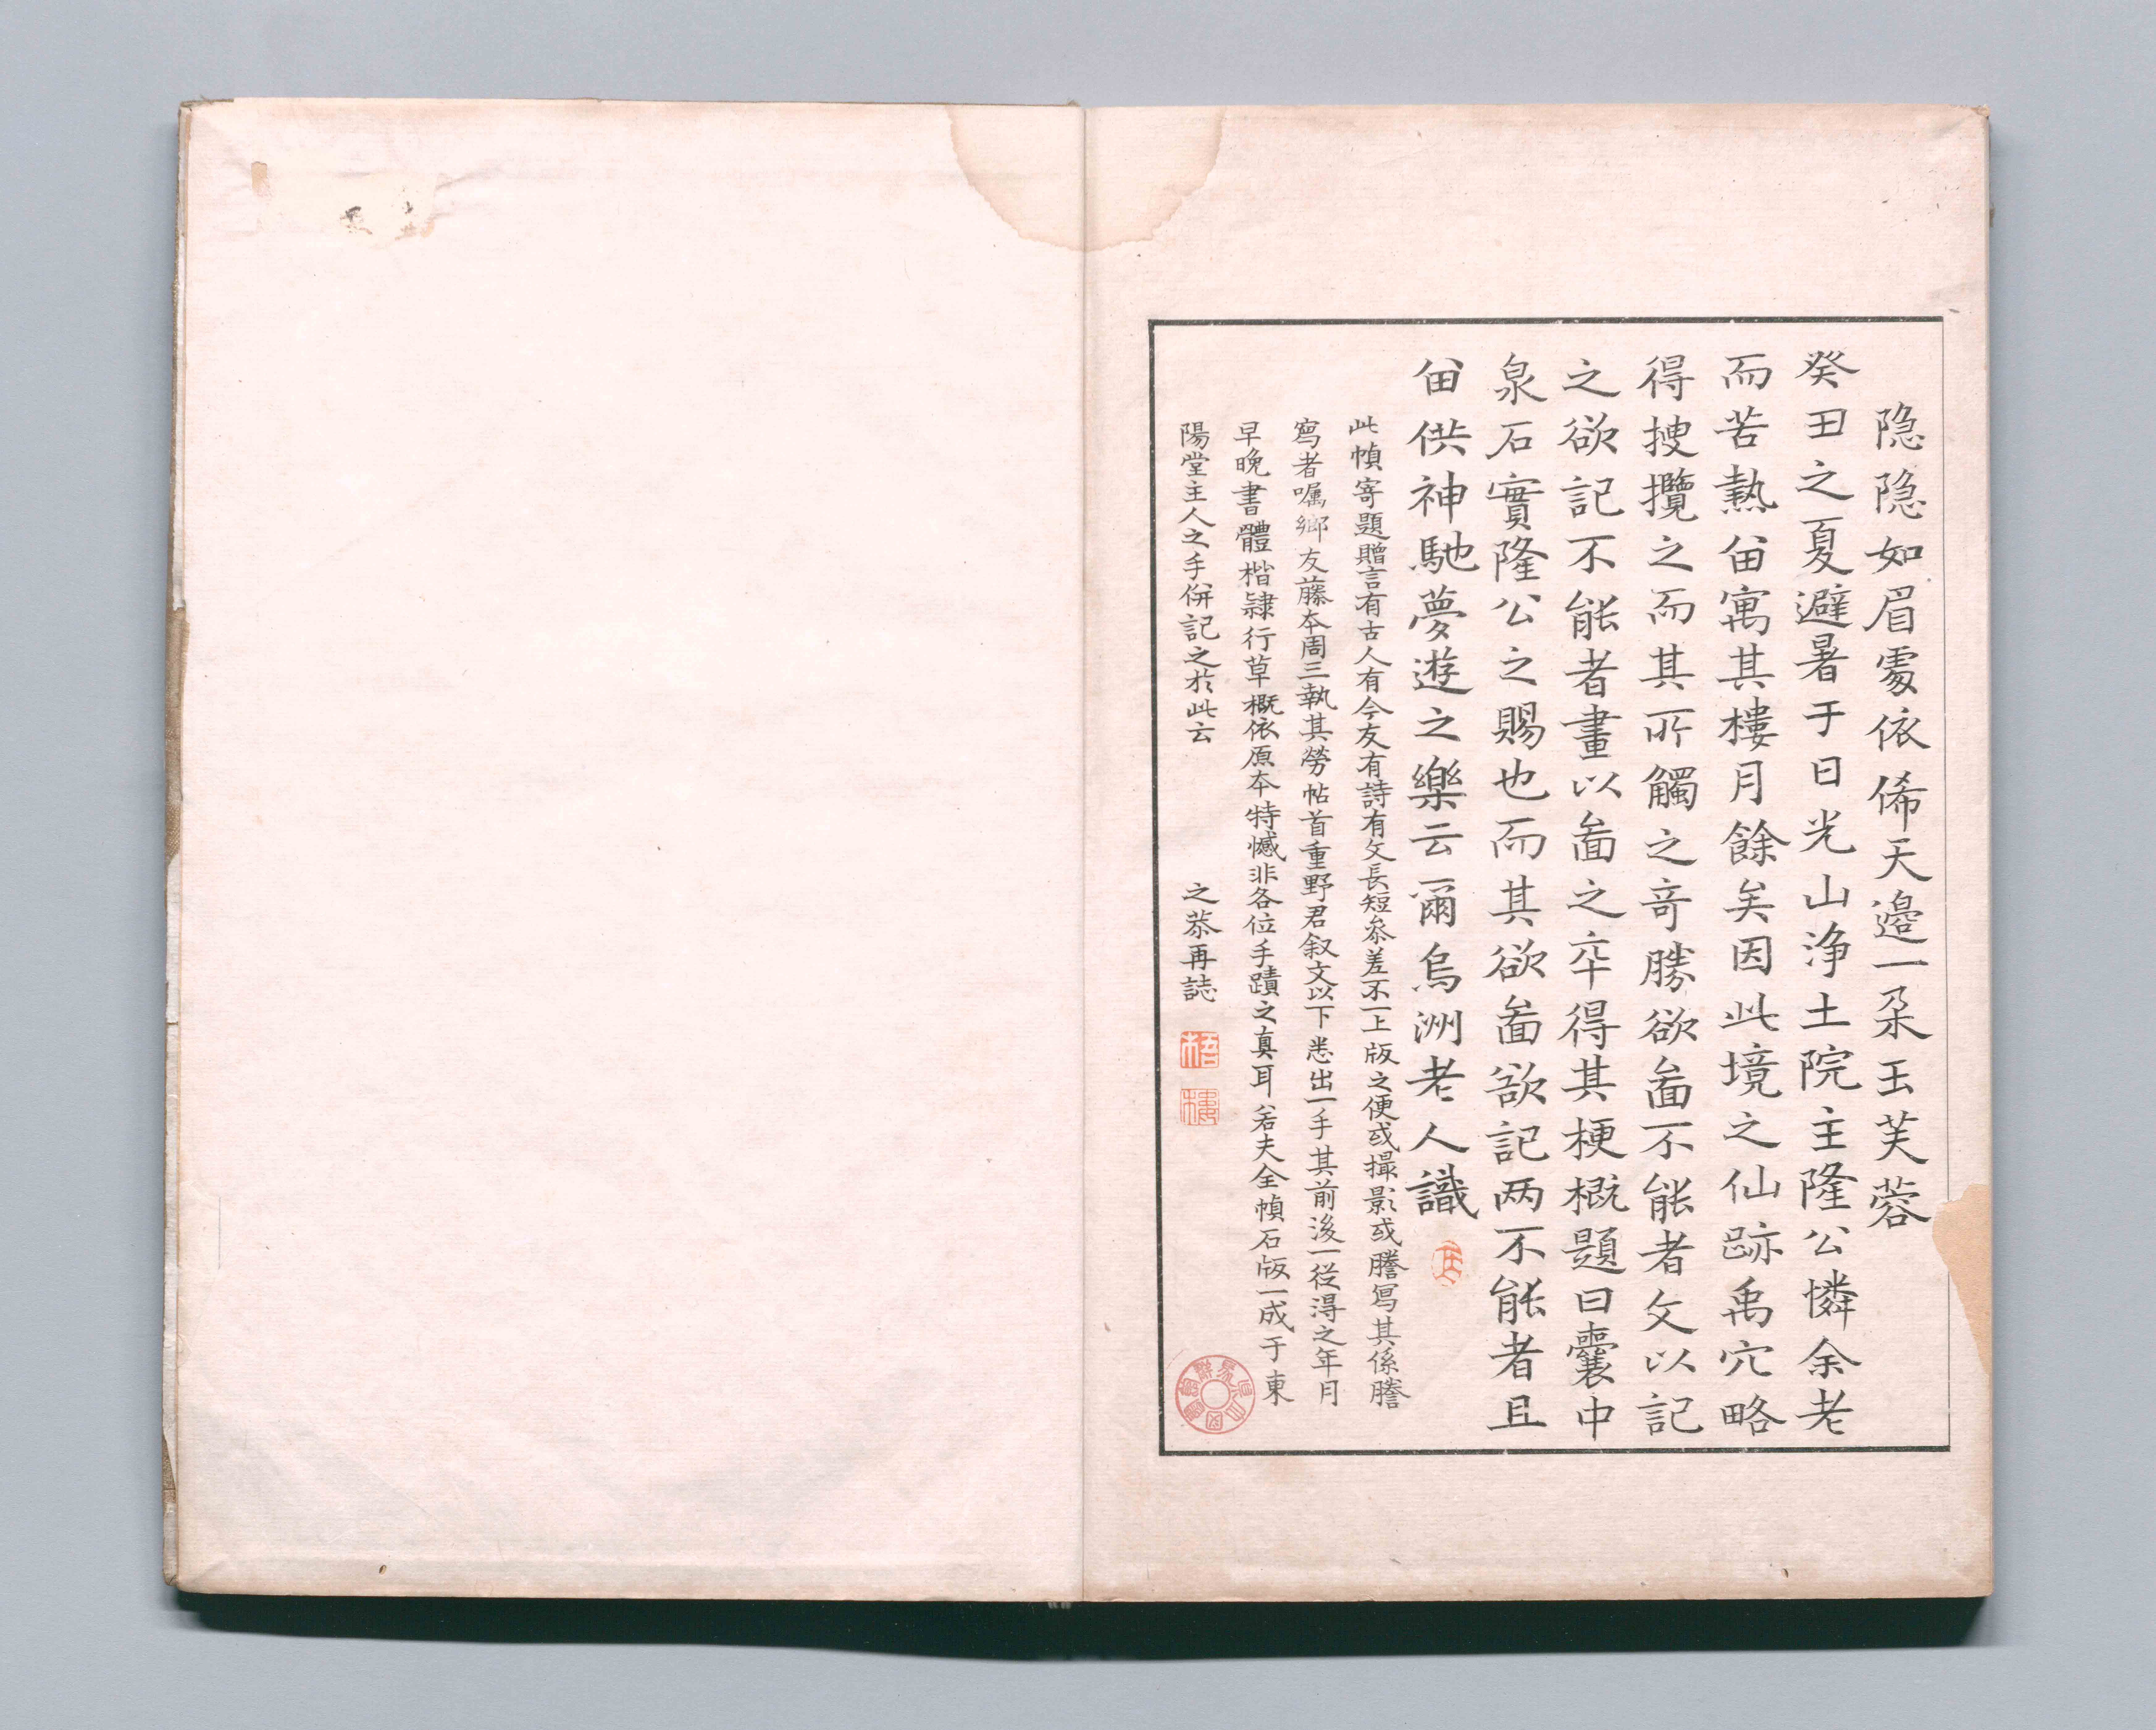 隐隐如眉處依俙天邉一朶玉芙蓉
癸丑之夏避暑于日光山浄土院主隆公憐余老
而苦熱畱寓其樓月餘矣因此境之仙跡禹穴略
得搜攬之而其所觸之奇勝欲啚不能者文以記
之欲記不能者畫以啚之卒得其梗概題曰囊中
泉石實隆公之賜也而其欲啚欲記两不能者且
畱供神馳夢遊之樂云爾烏洲老人識
此幀寄題贈言有古人有今友有詩有文長短叅差不一上版之便或撮影或謄寫其係謄
寫者嘱鄉友藤本周三執其勞帖首重野君叙文以下悉出一手其前後一從得之年月
早晩書體楷隷行草概依原本特憾非各位手蹟之真耳若夫全幀石版一成于東
陽堂主人之手併記之於此云
之恭再誌
梧
樓